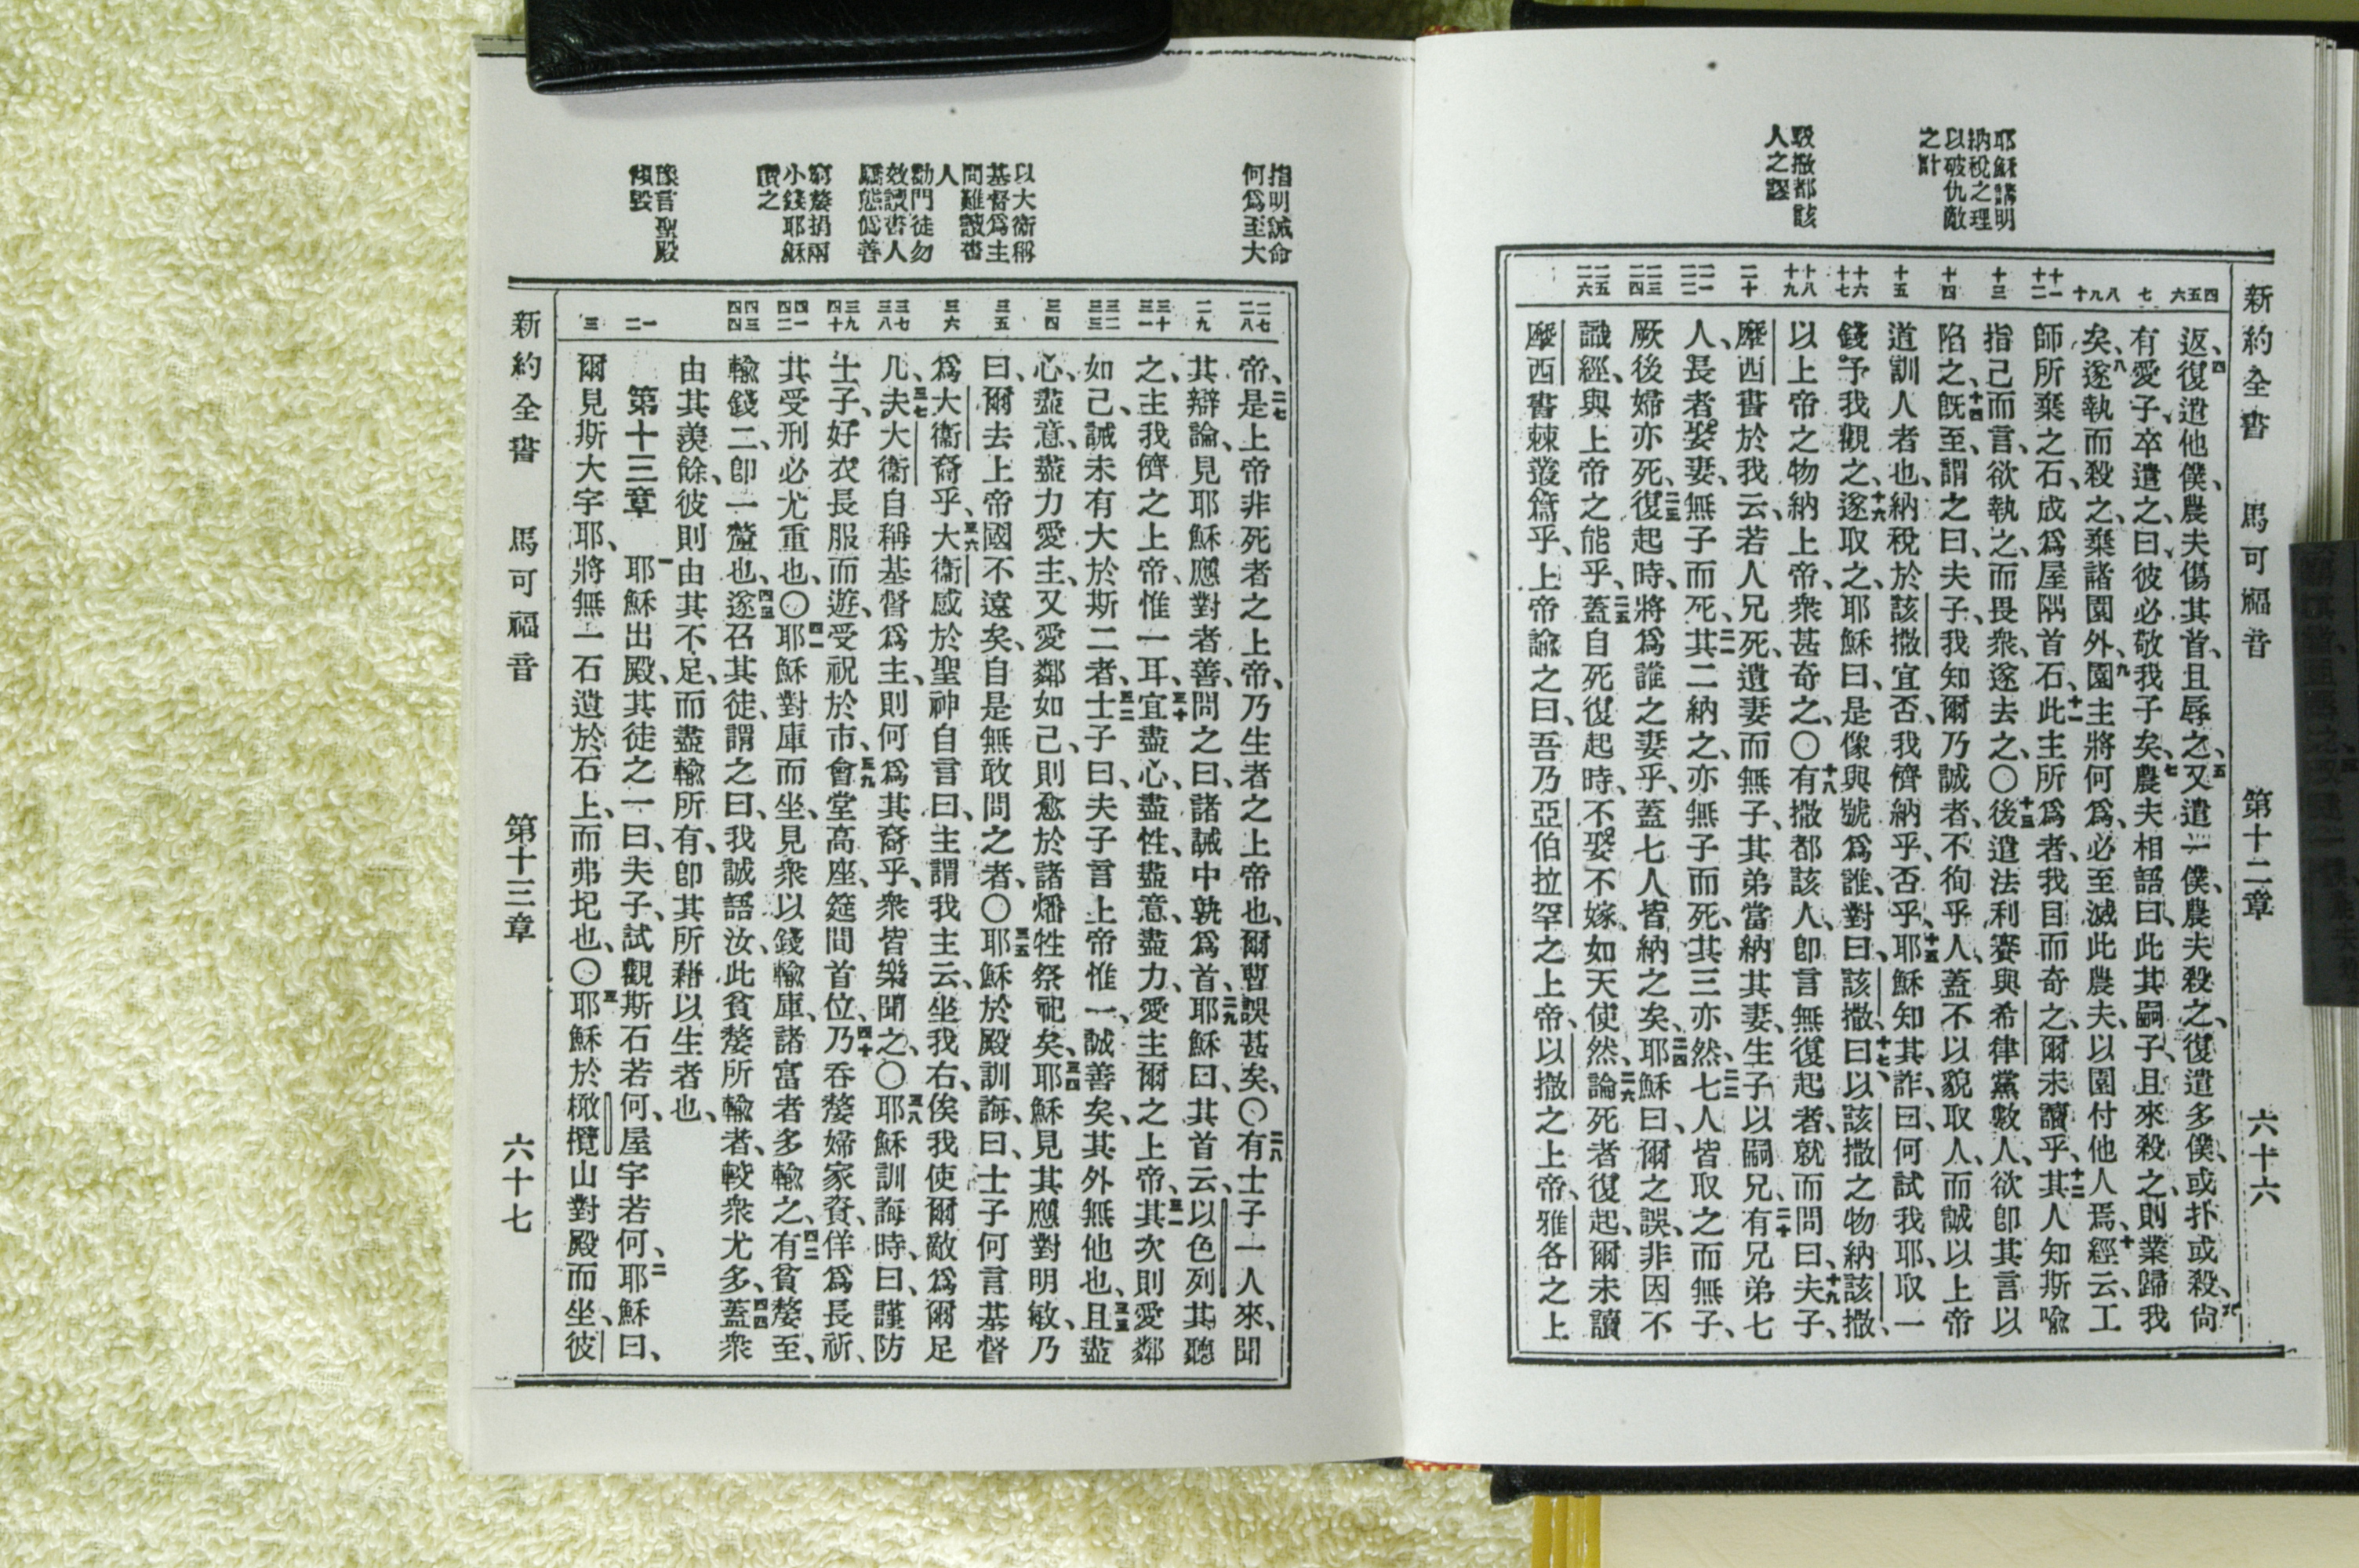 新約全書 馬可福音 第十二章 六十六
耶穌講明
納稅之理
以破仇敵
之計
駁撒都該
人之謬
四五六
七
八九十
十一十二
十三
十四
十五
十六十七
十八十九
二十
二一二二
二三二四
二五二六
返、四復遣他僕、農夫傷其首、且辱之、五又遣一僕、農夫殺之、復遣多僕、或扑或殺、六尙
有愛子、卒遣之、曰、彼必敬我子矣、七農夫相語曰、此其嗣子、且來殺之、則業歸我
矣、八遂執而殺之、棄諸園外、九園主將何爲、必至滅此農夫、以園付他人焉、十經云、工
師所棄之石、成爲屋隅首石、十一此主所爲者、我目而奇之、爾未讀乎、十二其人知斯喩
指己而言、欲執之、而畏衆、遂去之、〇十三後遣法利賽與希律黨數人、欲卽其言以
陷之、十四旣至、謂之曰、夫子、我知爾乃誠者、不徇乎人、蓋不以貌取人、而誠以上帝
道訓人者也、納稅於該撒宜否、我儕納乎、否乎、十五耶穌知其詐、曰、何試我耶、取一
錢予我觀之、十六遂取之、耶穌曰、是像與號爲誰、對曰、該撒、十七曰、以該撒之物納該撒、
以上帝之物納上帝、衆甚奇之、〇十八有撒都該人、卽言無復起者、就而問曰、十九夫子、
摩西書於我云、若人兄死、遺妻而無子、其弟當納其妻、生子以嗣兄、二十有兄弟七
人、長者娶妻、無子而死、二一其二納之、亦無子而死、其三亦然、二二七人皆取之而無子、
厥後婦亦死、二三復起時、將爲誰之妻乎、蓋七人皆納之矣、二四耶穌曰、爾之誤、非因不
識經、與上帝之能乎、二五蓋自死復起時、不娶不嫁、如天使然、二六論死者復起、爾未讀
摩西書棘叢篇乎、上帝諭之曰、吾乃亞伯拉罕之上帝、以撒之上帝、雅各之上
指明誡命
何爲至大
以大衞稱
基督爲主
問難讀書
人
勸門徒勿
效讀書人
驕態僞善
窮嫠捐兩
小錢耶穌
讚之
豫言聖殿
傾毀
二七二八
二九
三十三一
三二三三
三四
三五
三六
三七三八
三九四十
四一四二
四三四四
一二
三
帝、二七是上帝非死者之上帝、乃生者之上帝也、爾曹誤甚矣、〇二八有士子一人來、聞
其辯論、見耶穌應對者善、問之曰、諸誡中孰爲首、二九耶穌曰、其首云、以色列其聽
之、主我儕之上帝、惟一耳、三十宜盡心、盡性、盡意、盡力、愛主爾之上帝、三一其次則愛鄰
如己、誡未有大於斯二者、三二士子曰、夫子言上帝惟一、誠善矣、其外無他也、三三且盡
心、盡意、盡力愛主、又愛鄰如己、則愈於諸燔牲祭祀矣、三四耶穌見其應對明敏、乃
曰、爾去上帝國不遠矣、自是無敢問之者、〇三五耶穌於殿訓誨、曰、士子何言基督
爲大衞裔乎、三六大衞感於聖神自言曰、主謂我主云、坐我右、俟我使爾敵爲爾足
几、三七夫大衞自稱基督爲主、則何爲其裔乎、衆皆樂聞之、〇三八耶穌訓誨時、曰、謹防
士子、好衣長服而遊、受祝於市、三九會堂高座、筵間首位、四十乃吞嫠婦家資、佯爲長祈、
其受刑必尤重也、〇四一耶穌對庫而坐、見衆以錢輸庫、諸富者多輸之、四二有貧嫠至、
輸錢二、卽一釐也、四三遂召其徒、謂之曰、我誠語汝、此貧嫠所輸者、較衆尤多、四四蓋衆
由其羨餘、彼則由其不足、而盡輸所有、卽其所藉以生者也、
第十三章 一耶穌出殿、其徒之一曰、夫子、試觀斯石若何、屋宇若何、二耶穌曰、
爾見斯大宇耶、將無一石遺於石上、而弗圮也、〇三耶穌於橄欖山對殿而坐、彼
新約全書 馬可福音 第十三章 六十七